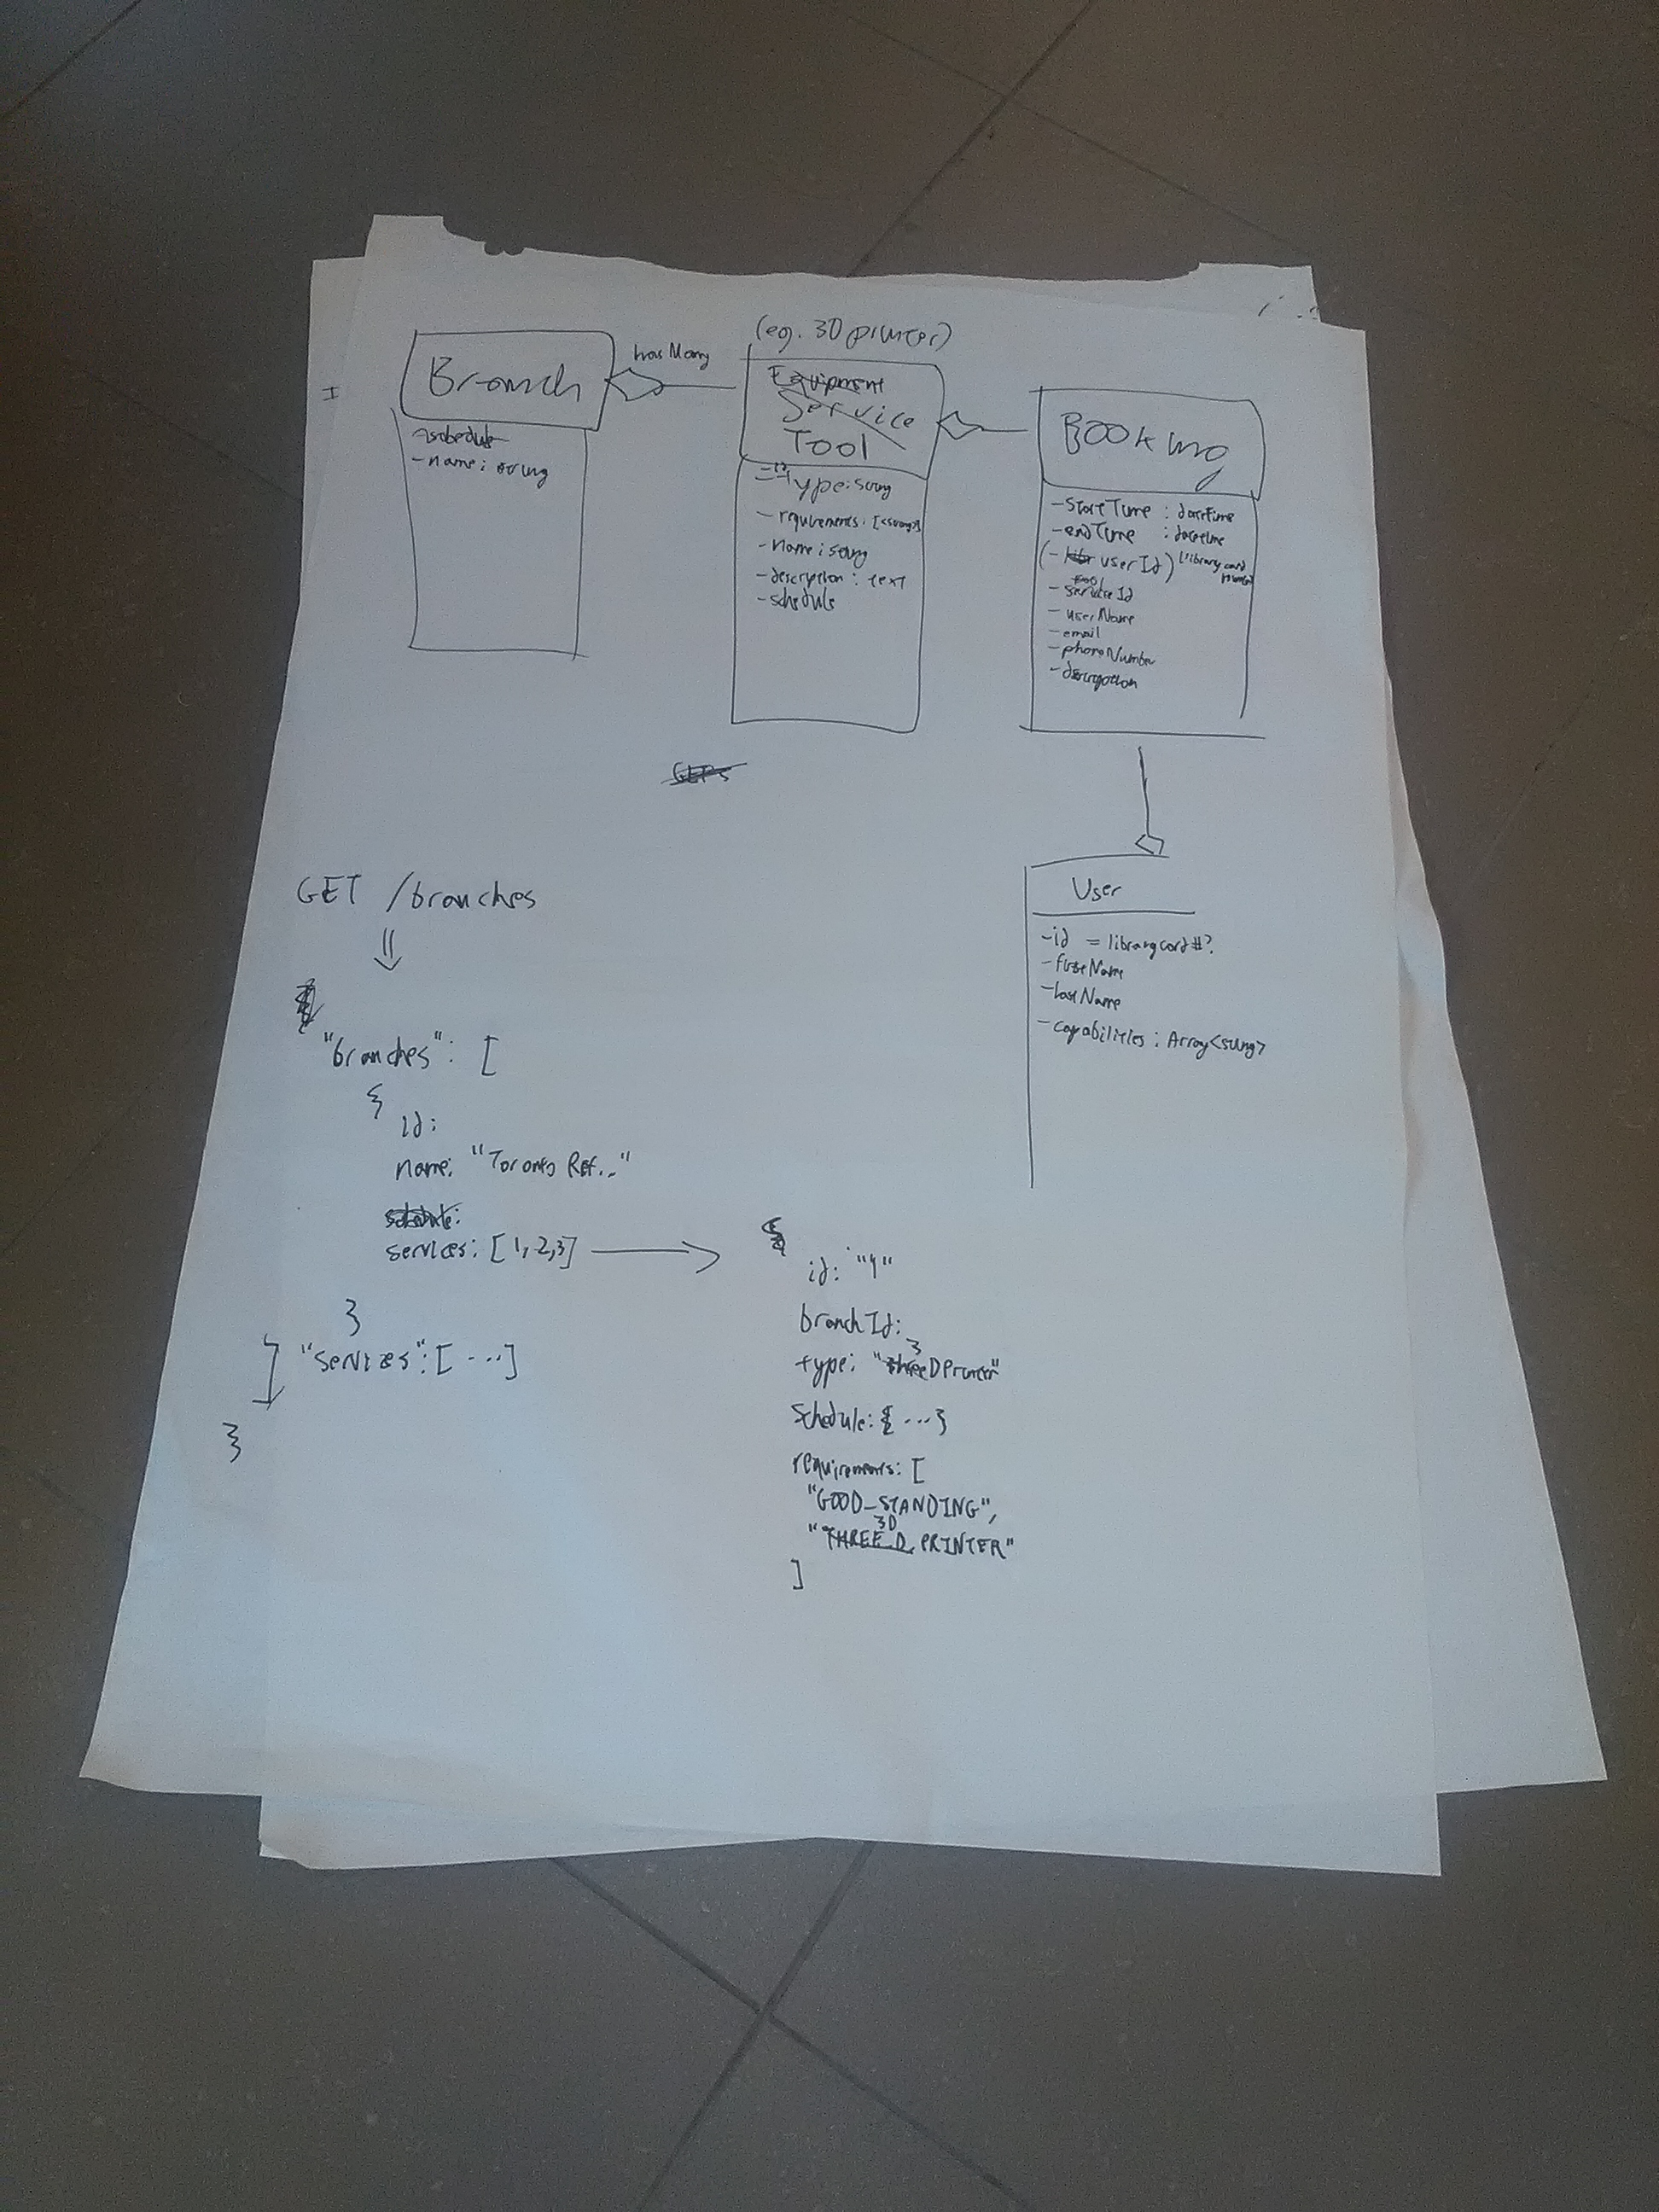 (eg. 3D printer)
Branch
hasMany
Equipment
Service
Tool
Booking
-schedule
-name: string
-type: string
-requirements: [<string>]
-name: string
-description: text
-schedule
-startTime: dateTime
-endTime: datetime
(- userId) (library card number)
-serviceId
-userName
-email
-phoneNumber
-description
GETs
User
-id = librarycard#?
-firstName
-lastName
-capabilities: Array<string>
GET /branches
"branches": [
{
id:
name: "Toronto Ref..."
schedule:
services: [1,2,3]
}
] "services": [...]
}
{
id: "1"
branchId:
type: "threeDPrinter"
3
schedule: {...}
requirements: [
"GOOD_STANDING",
3D
"THREE_D_PRINTER"
]